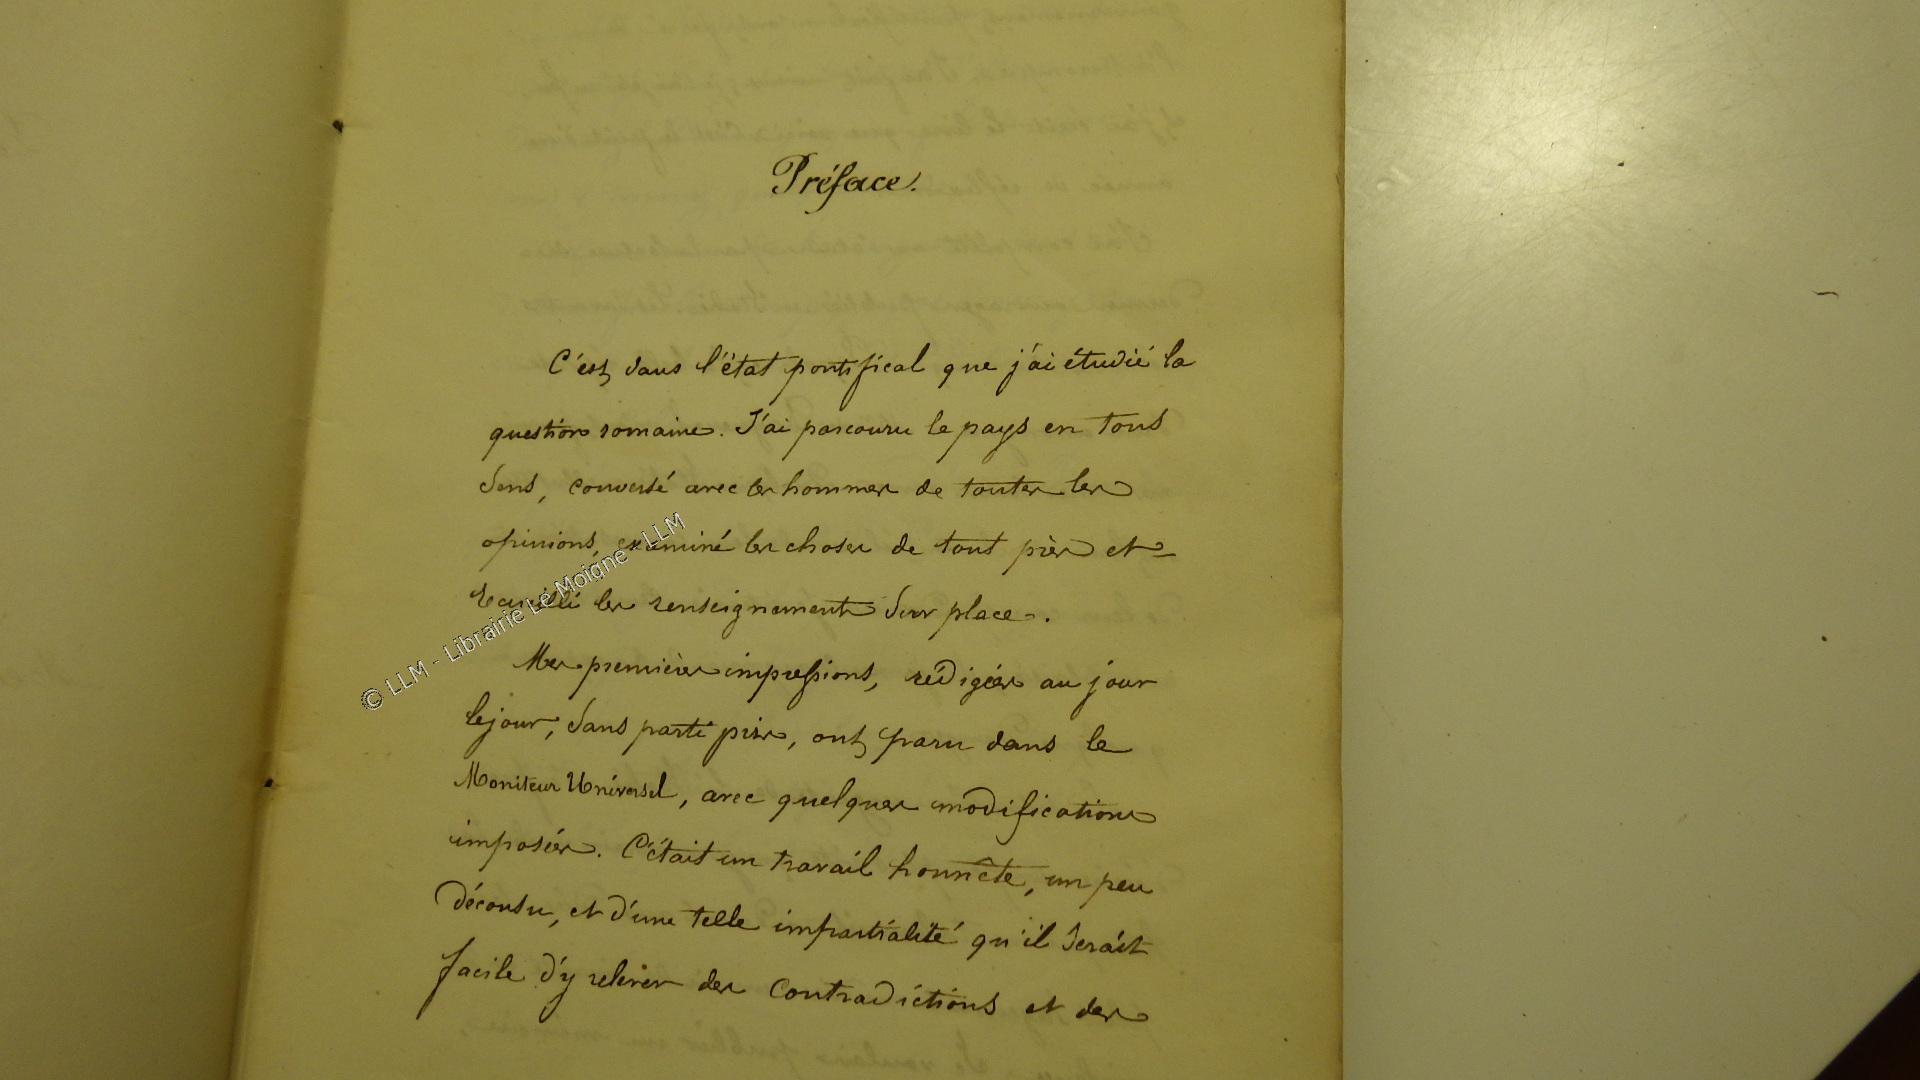 Préface.
C'est dans l'état pontifical que j'ai étudié la
question romaine. J'ai parcouru le pays en tous
sens, conversé avec les hommes de toutes les
opinions, examiné les choses de tout près et
recueilli les renseignements sur place.
Mes premières impressions, rédigées au jour
le jour, sans parti pris, ont paru dans le
Moniteur Universel, avec quelques modifications
imposées. C'était un travail honnête, un peu
décousu, et d'une telle impartialité qu'il serait
facile d'y relever des contradictions et des
© LLM - Librairie Le Moigne - LLM